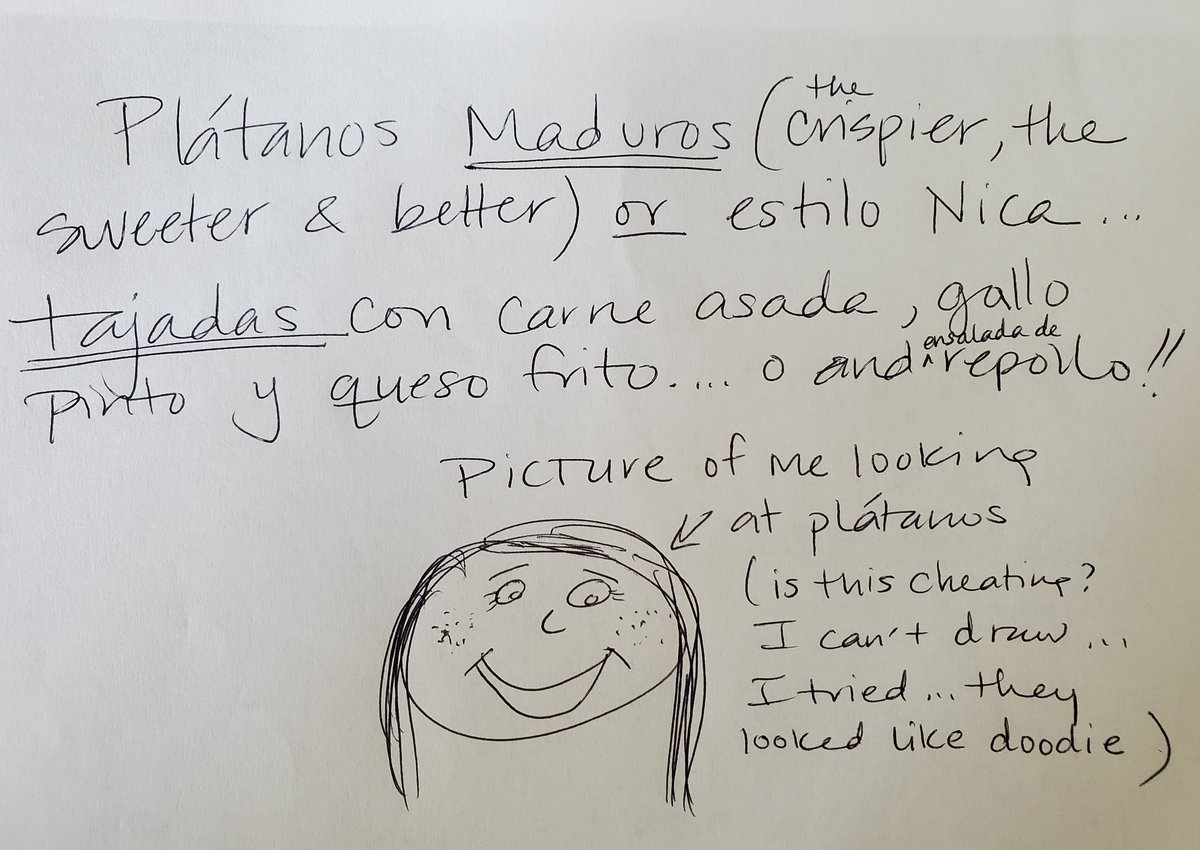 Plátanos Maduros (the crispier, the
sweeter & better) or estilo Nica...
tajadas con carne asada, gallo
pinto y queso frito.... o and ensalada de repollo!!
Picture of me looking
at plátanos
(is this cheating?
I can't draw...
I tried... they
looked like doodie)